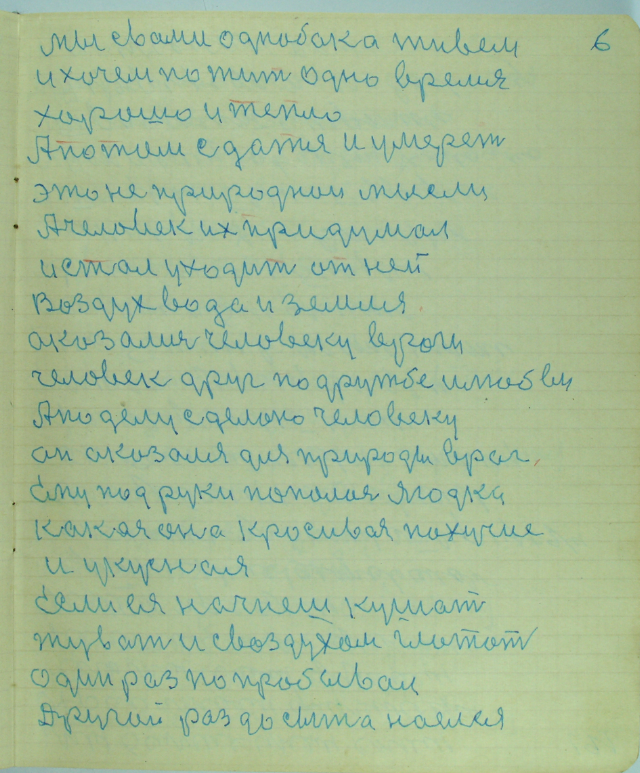 мы свами однобока живем 6
и хочем пожит одно время
хорошо и тепло
А потом сдатся и умерет
это не природнои мысли
А человек их придумал
и стал уходит от ней
Воздух вода и земля
аказался человеку враги
человек друг по дружбе и любви
А по делу сделоно человеку
он аказался для природы враг.
Ему под руки попалоя ягодка
какая она кросивая пахучие
и укусная
если ея начнеш кушат
жуват и своздухом глотот
один раз попробывал
Другой раз до сыта наелся